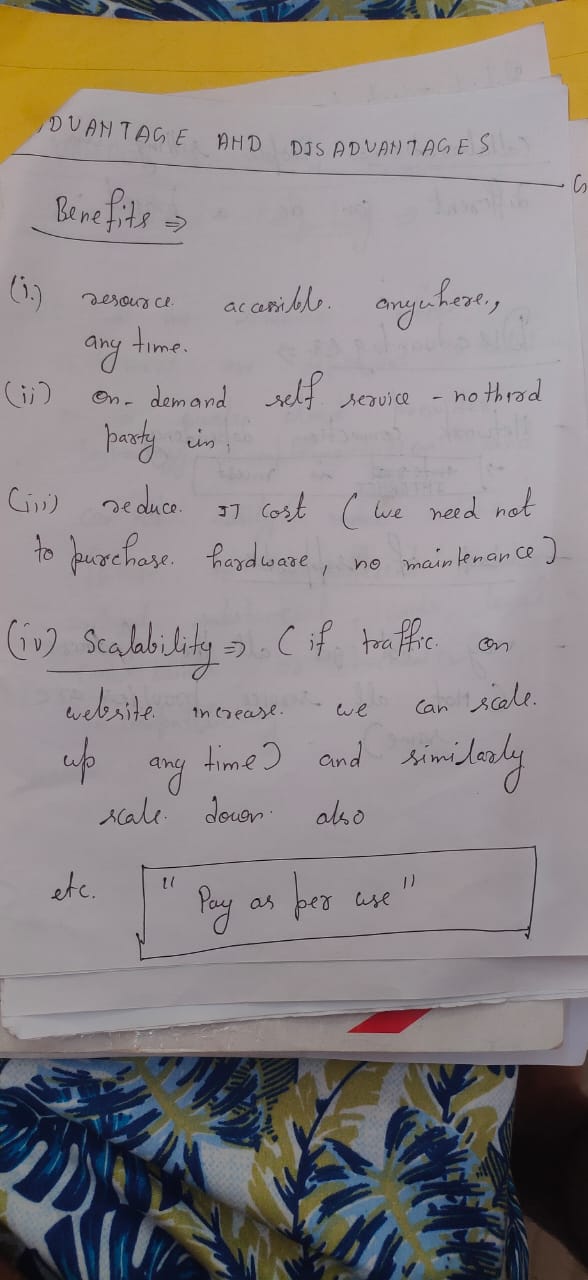 DVANTAGE AND DISADVANTAGES
Benefits ⇒
(i.) resource accessible. anywhere,
any time.
(ii) on-demand self service - no third
party in
(iii) reduce. IT cost ( we need not
to purchase. hardware, no maintenance )
(iv) Scalability ⇒ ( if traffic. on
website. increase. we can scale.
up any time ) and similarly
scale. down. also
etc. " Pay as per use "